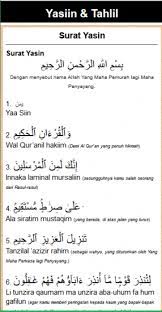 Yasiin & Tahlil
Surat Yasin
Surat Yasin
بِسْمِ اللهِ الرَّحْمٰنِ الرَّحِيْمِ
Dengan menyebut nama Allah Yang Maha Pemurah lagi Maha
Penyayang.
1. يس
Yaa Siin
2. وَالْقُرْءَانِ الْحَكِيْمِ
Wal Qur'anil hakiim (Demi Al Qur'an yang penuh hikmah)
3. إِنَّكَ لَمِنَ الْمُرْسَلِيْنَ
Innaka laminal mursaliin (sesungguhnya kamu salah seorang
dari Rasul-rasul)
4. عَلَى صِرَاطٍ مُسْتَقِيْمٍ
Ala siratim mustaqim (yang berada, di atas jalan yang lurus)
5. تَنْزِيْلَ الْعَزِيْزِ الرَّحِيْمِ
Tanzilal 'azizir rahim (sebagai wahyu, yang diturunkan oleh Yang
Maha Perkasa lagi Penyayang)
6. لِتُنْذِرَ قَوْمًا مَّا أُنْذِرَ ءَابَاؤُهُمْ فَهُمْ غٰفِلُوْنَ
Li tunzira qaumam ma unzira aba-uhum fa hum
gafilun (agar kamu memberi peringatan kepada kaum yang bapak-bapak